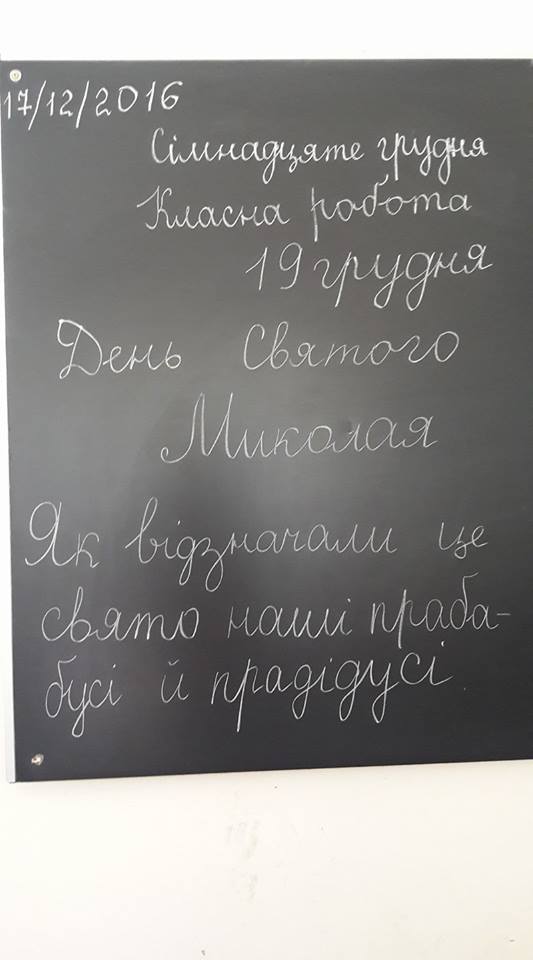 17/12/2016
Сімнадцяте грудня
Класна робота
19 грудня
День Святого
Миколая
Як відзначали це
свято наші праба-
бусі й прадідусі.